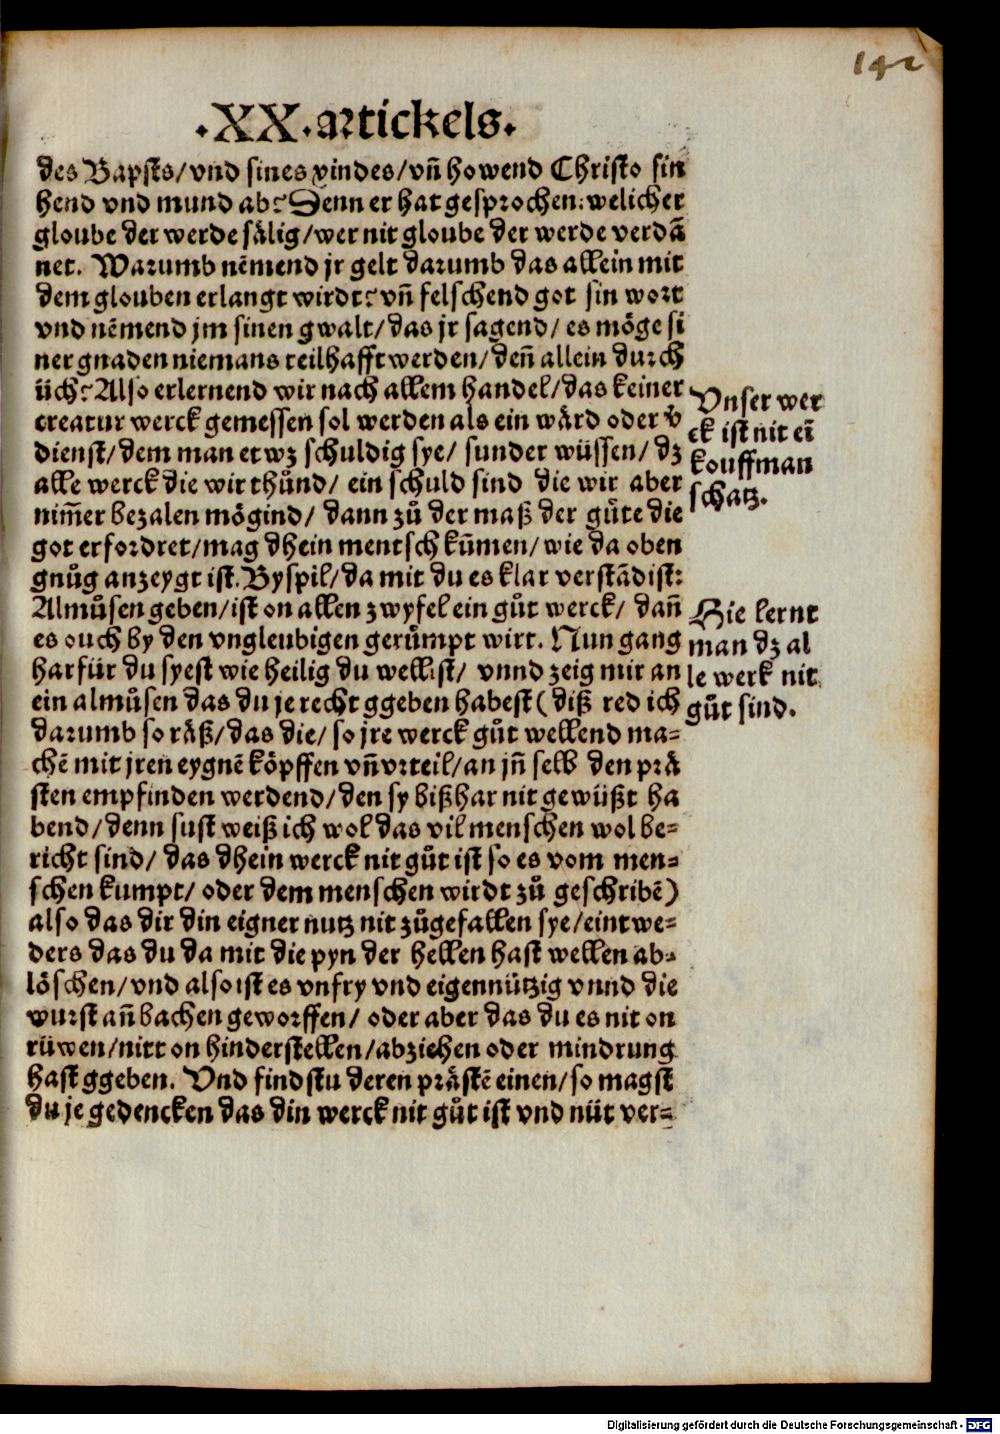 142
.XX.artickels.
des Bapsts/vnd sines xindes/vn̄ howend Christo sin
hend vnd mund ab? Denn er hat gesprochen: welicher
gloube der werde sälig/wer nit gloube der werde verdā
net. Warumb nēmend jr gelt darumb das allein mit
dem glouben erlangt wirdt? vn̄ felschend got sin wort
vnd nēmend jm sinen gwalt/das jr sagend/ es möge si
ner gnaden niemans teilhafft werden/ den̄ allein durch
üch? Also erlernend wir nach allem handel/das keiner
creatur werck gemessen sol werden als ein wärd oder v̄
dienst/ dem man etwz schuldig sye/ sunder wüssen/ dz
alle werck die wir thůnd/ ein schuld sind die wir aber
nim̄er bezalen mögind/ dann zů der maß der gůte die
got erfordret/mag dhein mentsch kūmen/ wie da oben
gnůg anzeygt ist. Byspil/ da mit du es klar verstādist:
Almůsen geben/ist on allen zwyfel ein gůt werck/ dan̄
es ouch by den vngleubigen gerůmpt wirt. Nun gang
harfür du syest wie heilig du wellist/ vnnd zeig mir an
ein almůsen das du je recht ggeben habest (diß red ich
darumb so räß/das die/ so jre werck gůt wellend ma-
chē mit jren eygnē köpffen vn̄ vrteil/an jn̄ selb den prä
sten empfinden werdend/den sy bißhar nit gewüßt ha
bend/denn sust weiß ich wol das vil menschen wol be-
richt sind/ das dhein werck nit gůt ist so es vom men-
schen kumpt/ oder dem menschen wirdt zů geschribē)
also das dir din eigner nutz nit zůgefallen sye/eintwe-
ders das du da mit die pyn der hellen hast wellen ab-
löschen/vnd also ist es vnfry vnd eigennützig vnnd die
wurst an̄ bachen geworffen/ oder aber das du es nit on
rüwen/nitt on hinderstellen/abziehen oder mindrung
hast ggeben. Vnd findstu deren prästē einen/so magst
du je gedencken das din werck nit gůt ist vnd nüt ver-
Vnser wer
ck ist nit eī
kouffman
schatz.
Hie lernt
man dz al
le werk nit
gůt sind.
Digitalisierung gefördert durch die Deutsche Forschungsgemeinschaft - DFG